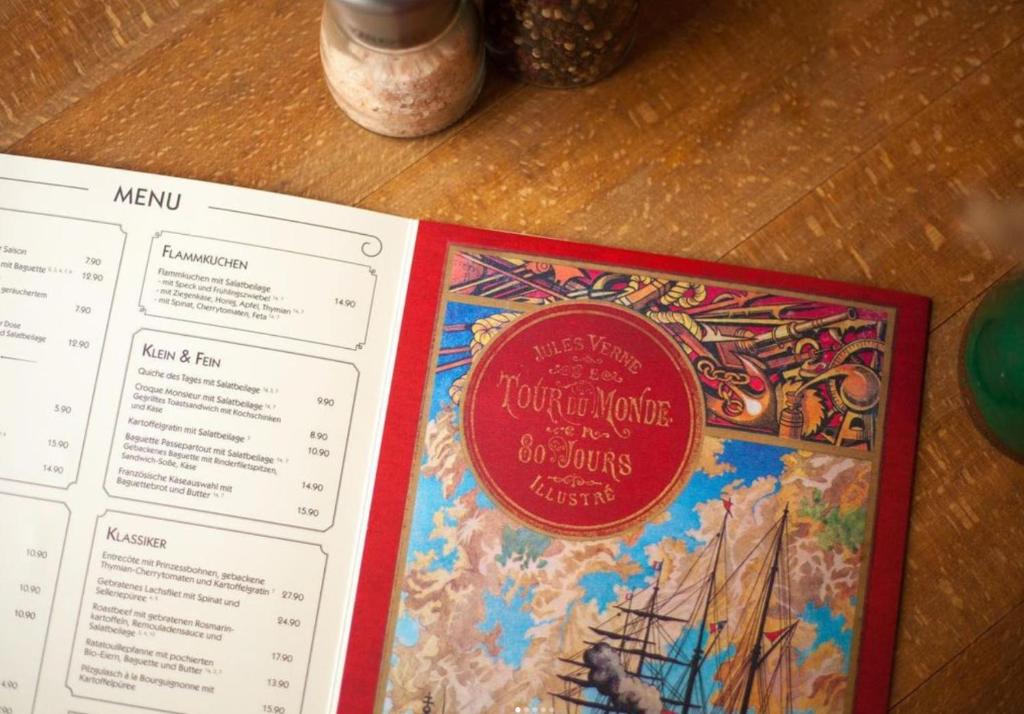 MENU
r Saison
7.90
mit Baguette
12.90
geräuchertem
7.90
r Dose
d Salatbeilage
12.90
5.90
15.90
14.90
10.90
10.90
10.90
FLAMMKUCHEN
Flammkuchen mit Salatbeilage
- mit Speck und Frühlingszwiebel
14.90
- mit Ziegenkäse, Honig, Apfel, Thymian
- mit Spinat, Cherrytomaten, Feta
KLEIN & FEIN
Quiche des Tages mit Salatbeilage 9.90
Croque Monsieur mit Salatbeilage
Gegrilltes Toastsandwich mit Kochschinken
und Käse 8.90
Kartoffelgratin mit Salatbeilage 10.90
Baguette Passepartout mit Salatbeilage
Gebackenes Baguette mit Rinderfiletspitzen,
Sandwich-Soße, Käse 14.90
Französische Käseauswahl mit
Baguettebrot und Butter 15.90
KLASSIKER
Entrecôte mit Prinzessbohnen, gebackene
Thymian-Cherrytomaten und Kartoffelgratin 27.90
Gebratenes Lachsfilet mit Spinat und
Selleriepüree 24.90
Roastbeef mit gebratenen Rosmarin-
kartoffeln, Remouladensauce und
Salatbeilage 17.90
Ratatouillepfanne mit pochierten
Bio-Eiern, Baguette und Butter 13.90
Pilzgulasch à la Bourguignonne mit
Kartoffelpüree 15.90
JULES VERNE
LE
TOUR DU MONDE
EN
80 JOURS
ILLUSTRÉ